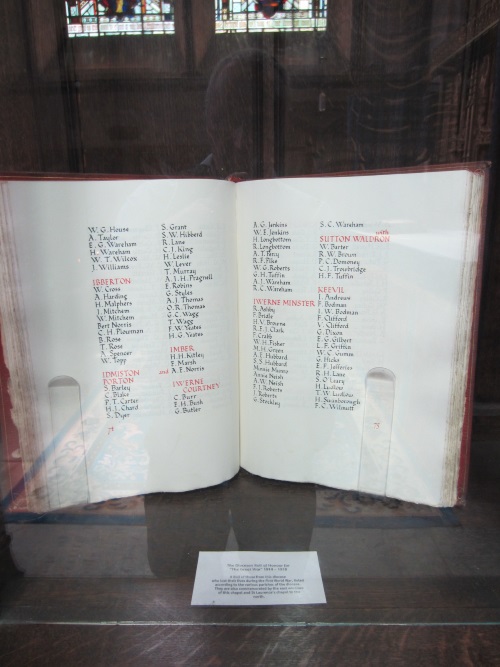 W. G. House
A. Taylor
E. G. Wareham
H. Wareham
W. T. Wilcox
J. Williams
IBBERTON
W. Cross
A. Harding
H. Malphers
J. Mitchem
W. Mitchem
Bert Norris
C. H. Plowman
B. Rose
T. Ross
A. Spencer
W. Topp
IDMISTON
and
PORTON
S. Barley
C. Blake
P. T. Carter
H. J. Chard
S. Dyer
S. Grant
S. W. Hibberd
R. Lane
C. J. King
H. Leslie
W. Lever
T. Murray
A. J. H. Pragnell
E. Robins
G. Styles
A. J. Thomas
O. R. Thomas
G. C. Wagg
T. Wagg
F. W. Yeates
H. G. Yeates
IMBER
H. H. Kitley
E. Marsh
A. E. Norris
IWERNE
COURTNEY
C. Burr
E. H. Bush
G. Butler
A. G. Jenkins
W. E. Jenkins
H. Longbottom
R. Longbottom
A. T. Parry
R. F. Pike
W. G. Roberts
G. H. Tuffin
A. J. Wareham
R. C. Wareham
IWERNE MINSTER
R. Ashby
F. Bridle
H. V. Browne
R. E. J. Clark
F. Crabb
W. H. Fisher
M. H. Green
A. E. Hubbard
S. S. Hubbard
Angus Neish
A. W. Neish
F. J. Roberts
J. Roberts
G. Stickley
S. C. Wareham
with
SUTTON WALDRON
W. Barter
R. W. Brown
P. C. Domoney
C. J. Troubridge
H. F. Tuffin
KEEVIL
J. Andrews
F. Bodman
J. W. Bodman
F. Clifford
V. Clifford
G. Dixon
E. G. Gilbert
L. F. Griffin
W. C. Gumm
G. Hicks
E. F. Jefferies
R. H. Lane
S. O'Leary
H. Ludlow
T. W. Ludlow
H. Swanborough
F. C. Wilmott
The Diocesan Roll of Honour for
"The Great War" 1914 - 1918